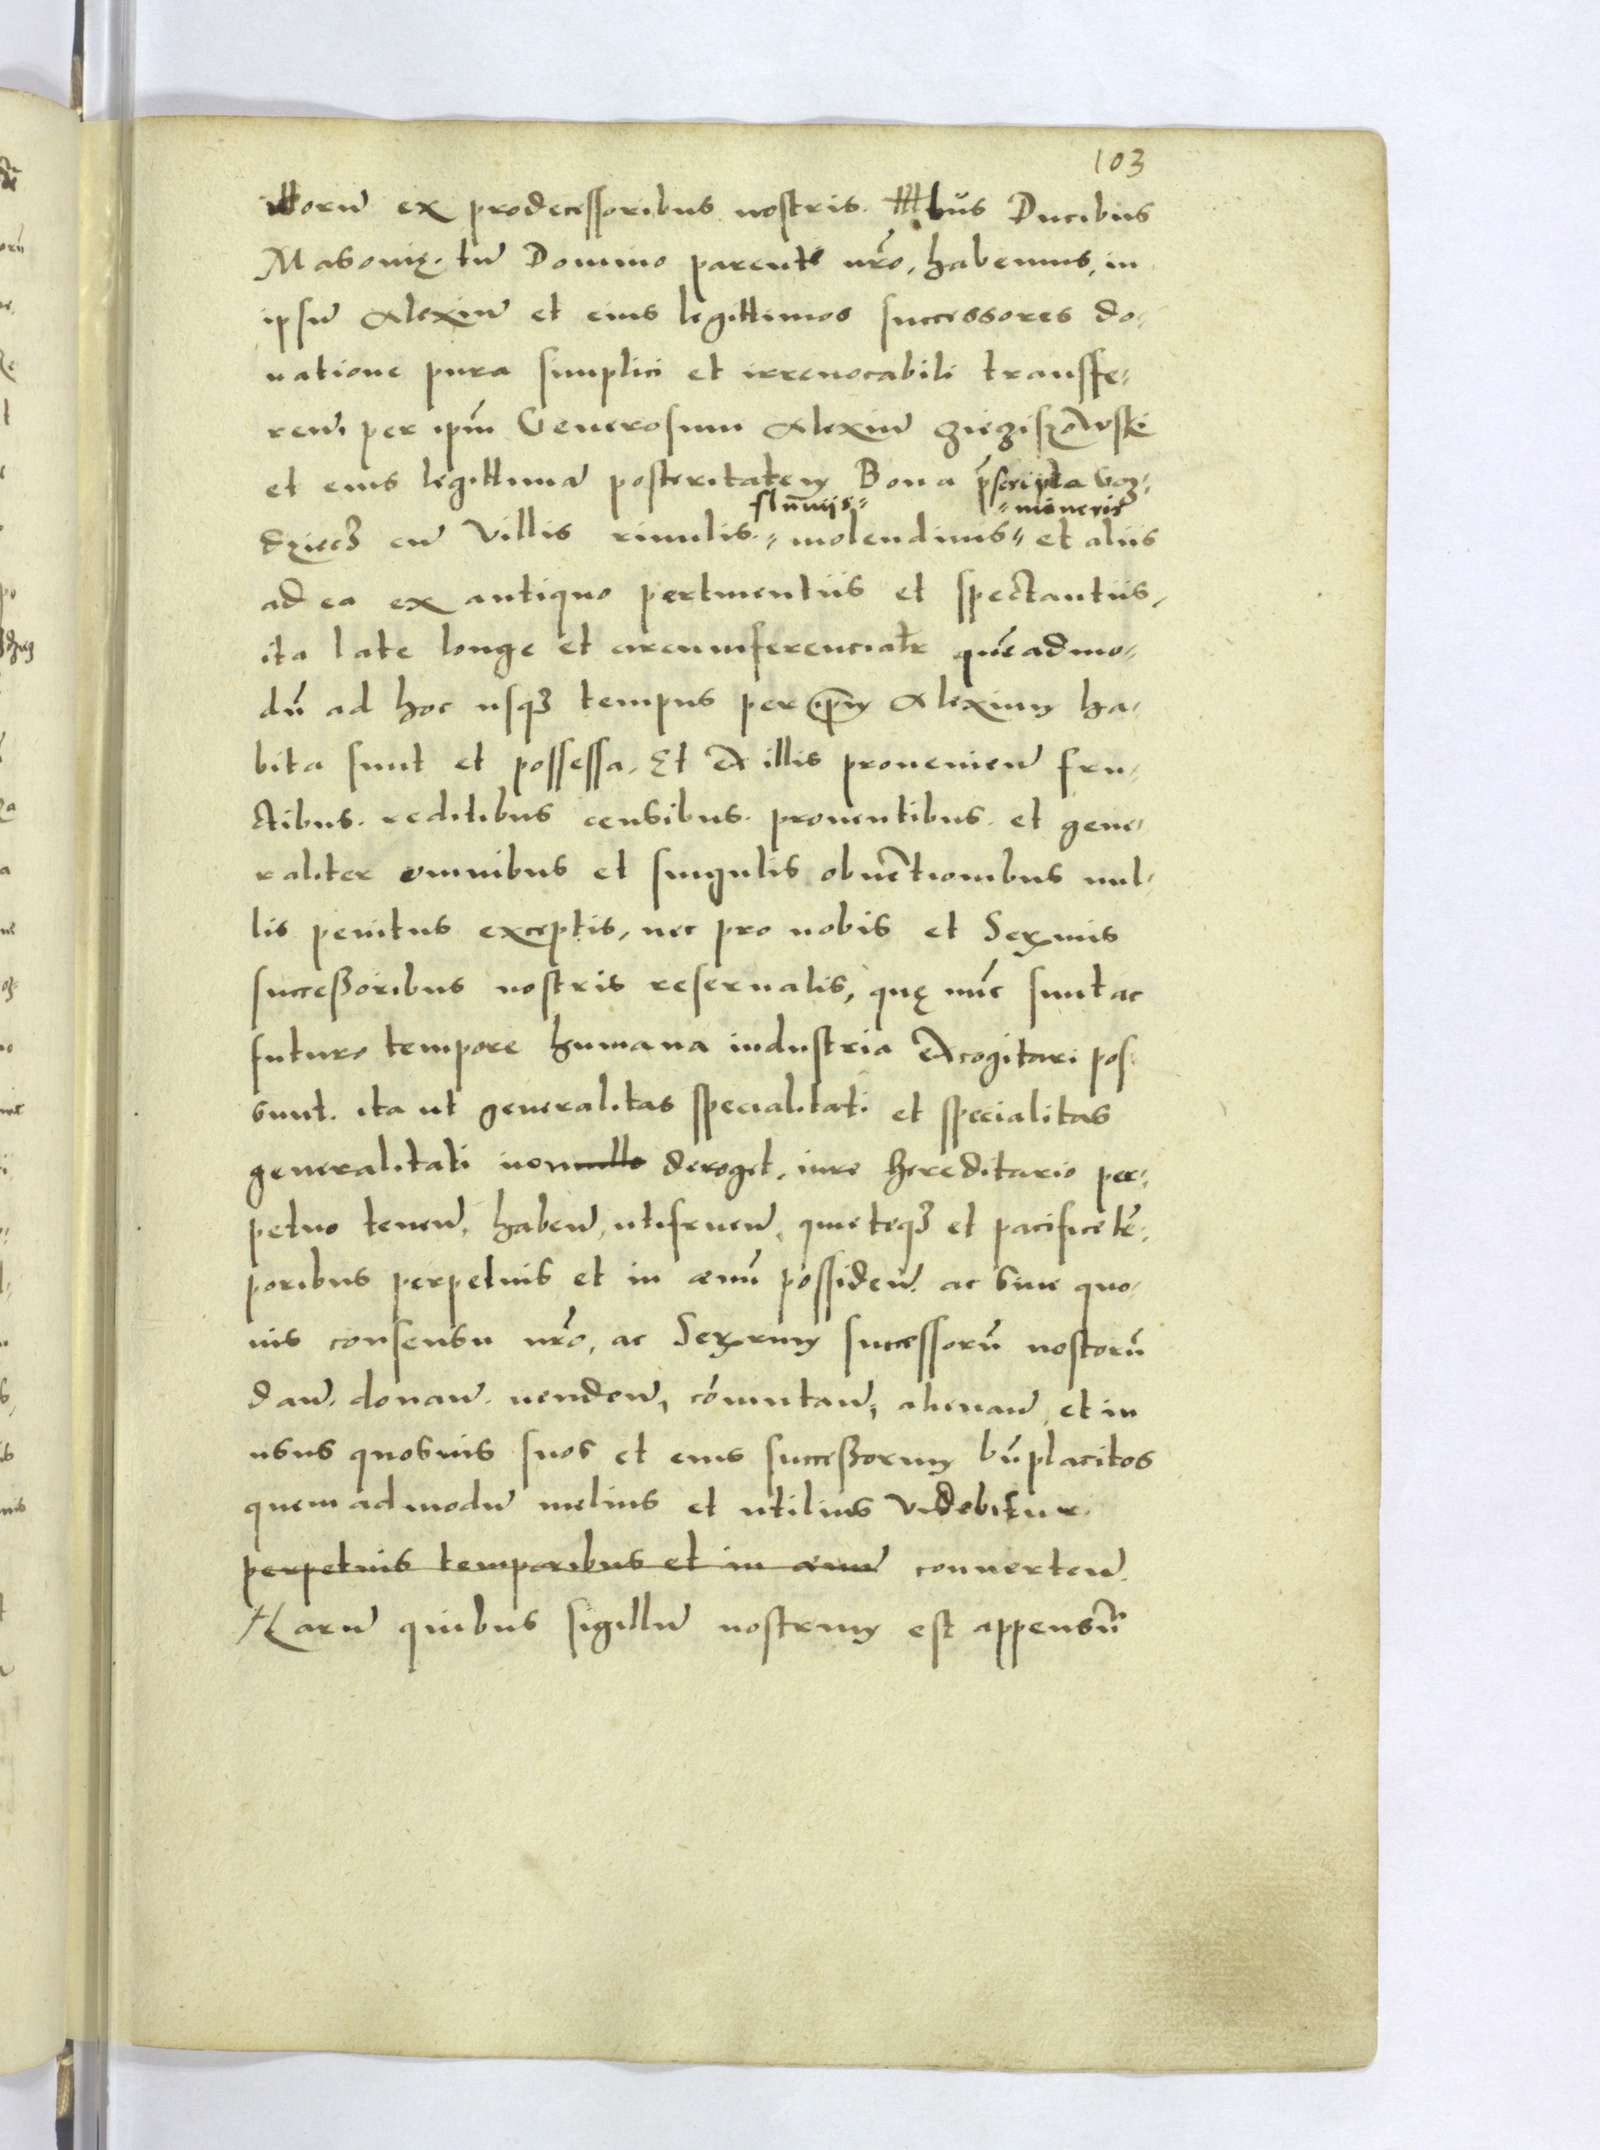 103
illorū ex prodecessoribus nostris. Illbūs Ducibus
Masovię. tū Domino parente nr̄o, habemus, in
ipsū Alexiū et eius legittimos successores do-
natione pura simplici et irreuocabili transffe-
ren̄. per ip̄m Generosum Alexiū
et eius legittimā posteritatem Bona p̄scripta Goz-
fluuijs
mineris
dziecz cū villis riuulis molendinis et aliis
ad ea ex antiquo pertinentiis et spectantiis,
ita late longe et circumferencialr quēadmo-
dū ad hoc usq3 tempus per ip̄m Alexium ha-
bita sunt et possessa. Et ex illis prouenien̄ fru-
ctibus. reditibus censibus. prouentibus. et gene-
raliter omnibus et singulis obuētionibus nul-
lis penitus exceptis, nec pro nobis et Serṃis
successoribus nostris reseruatis, quę nūc sunt ac
futuro tempore humana industria excogitari pos-
sunt. ita ut generalitas specialitati et specialitas
generalitati non nullo deroget. iure hereditario per-
petuo tenen̄, haben̄, utifruen̄, quieteq3 et pacifice tē-
poribus perpetuis et in aeuū possiden̄. ac sine quo-
uis consensu nr̄o, ac Serm̄rum successorū nostorū
dan̄. donan̄. uenden̄, cōmutan̄, alienan̄, et in
usus quosuis suos et eius successorum bn̄placitos
quemadmodū melius et utilius videbitur.
perpetuis temporibus et in aeuū conuerten̄.
Harū quibus sigillū nostrum est appensū